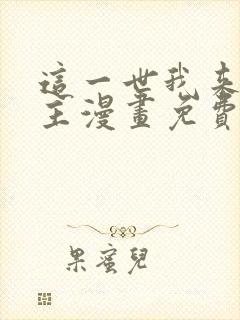 這一世我來
主漫畫免費
果蜜兒